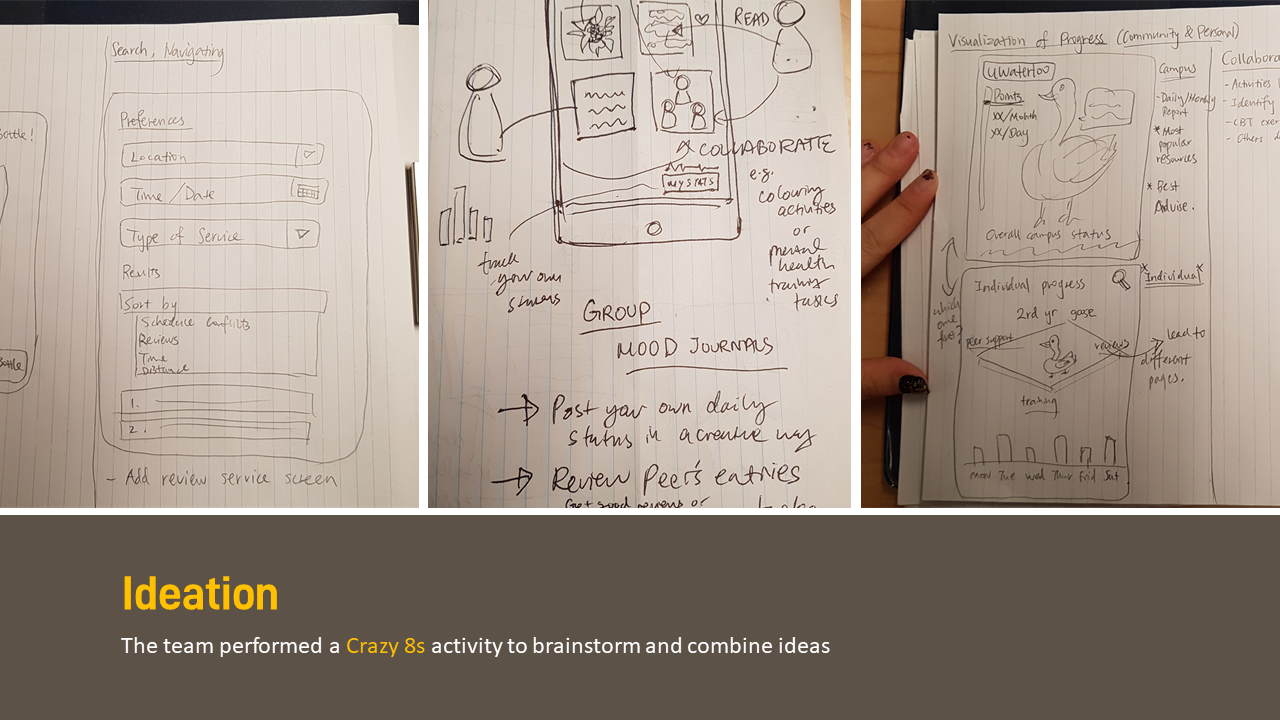 Search, Navigating
Bottle!
Preferences
Location
Time/Date
Type of Service
Results
Sort by
Schedule Conflicts
Reviews
Time
Distance
1.
2.
Bottle
- Add review service screen
READ
COLLABORATE
e.g.
colouring
activities
or
mental
health
training
tasks
MY STATS
track
your own
GROUP
MOOD JOURNALS
→ Post your own daily
status in a creative way
→ Review Peer's entries
Get good reviews or
Visualization of Progress (Community & Personal)
UWaterloo
Points
XX/Month
XX/Day
Overall campus status
Campus
- Daily/Monthly
Report
* Most
popular
resources
* Best
Advise.
- Activities
- Identify
- CBT
- Others
which
one
first?
Individual progress
2rd yr goose
peer support
reviews
training
Mon Tue Wed Thur Fri Sat
*Individual*
lead to
different
pages.
Ideation
The team performed a Crazy 8s activity to brainstorm and combine ideas